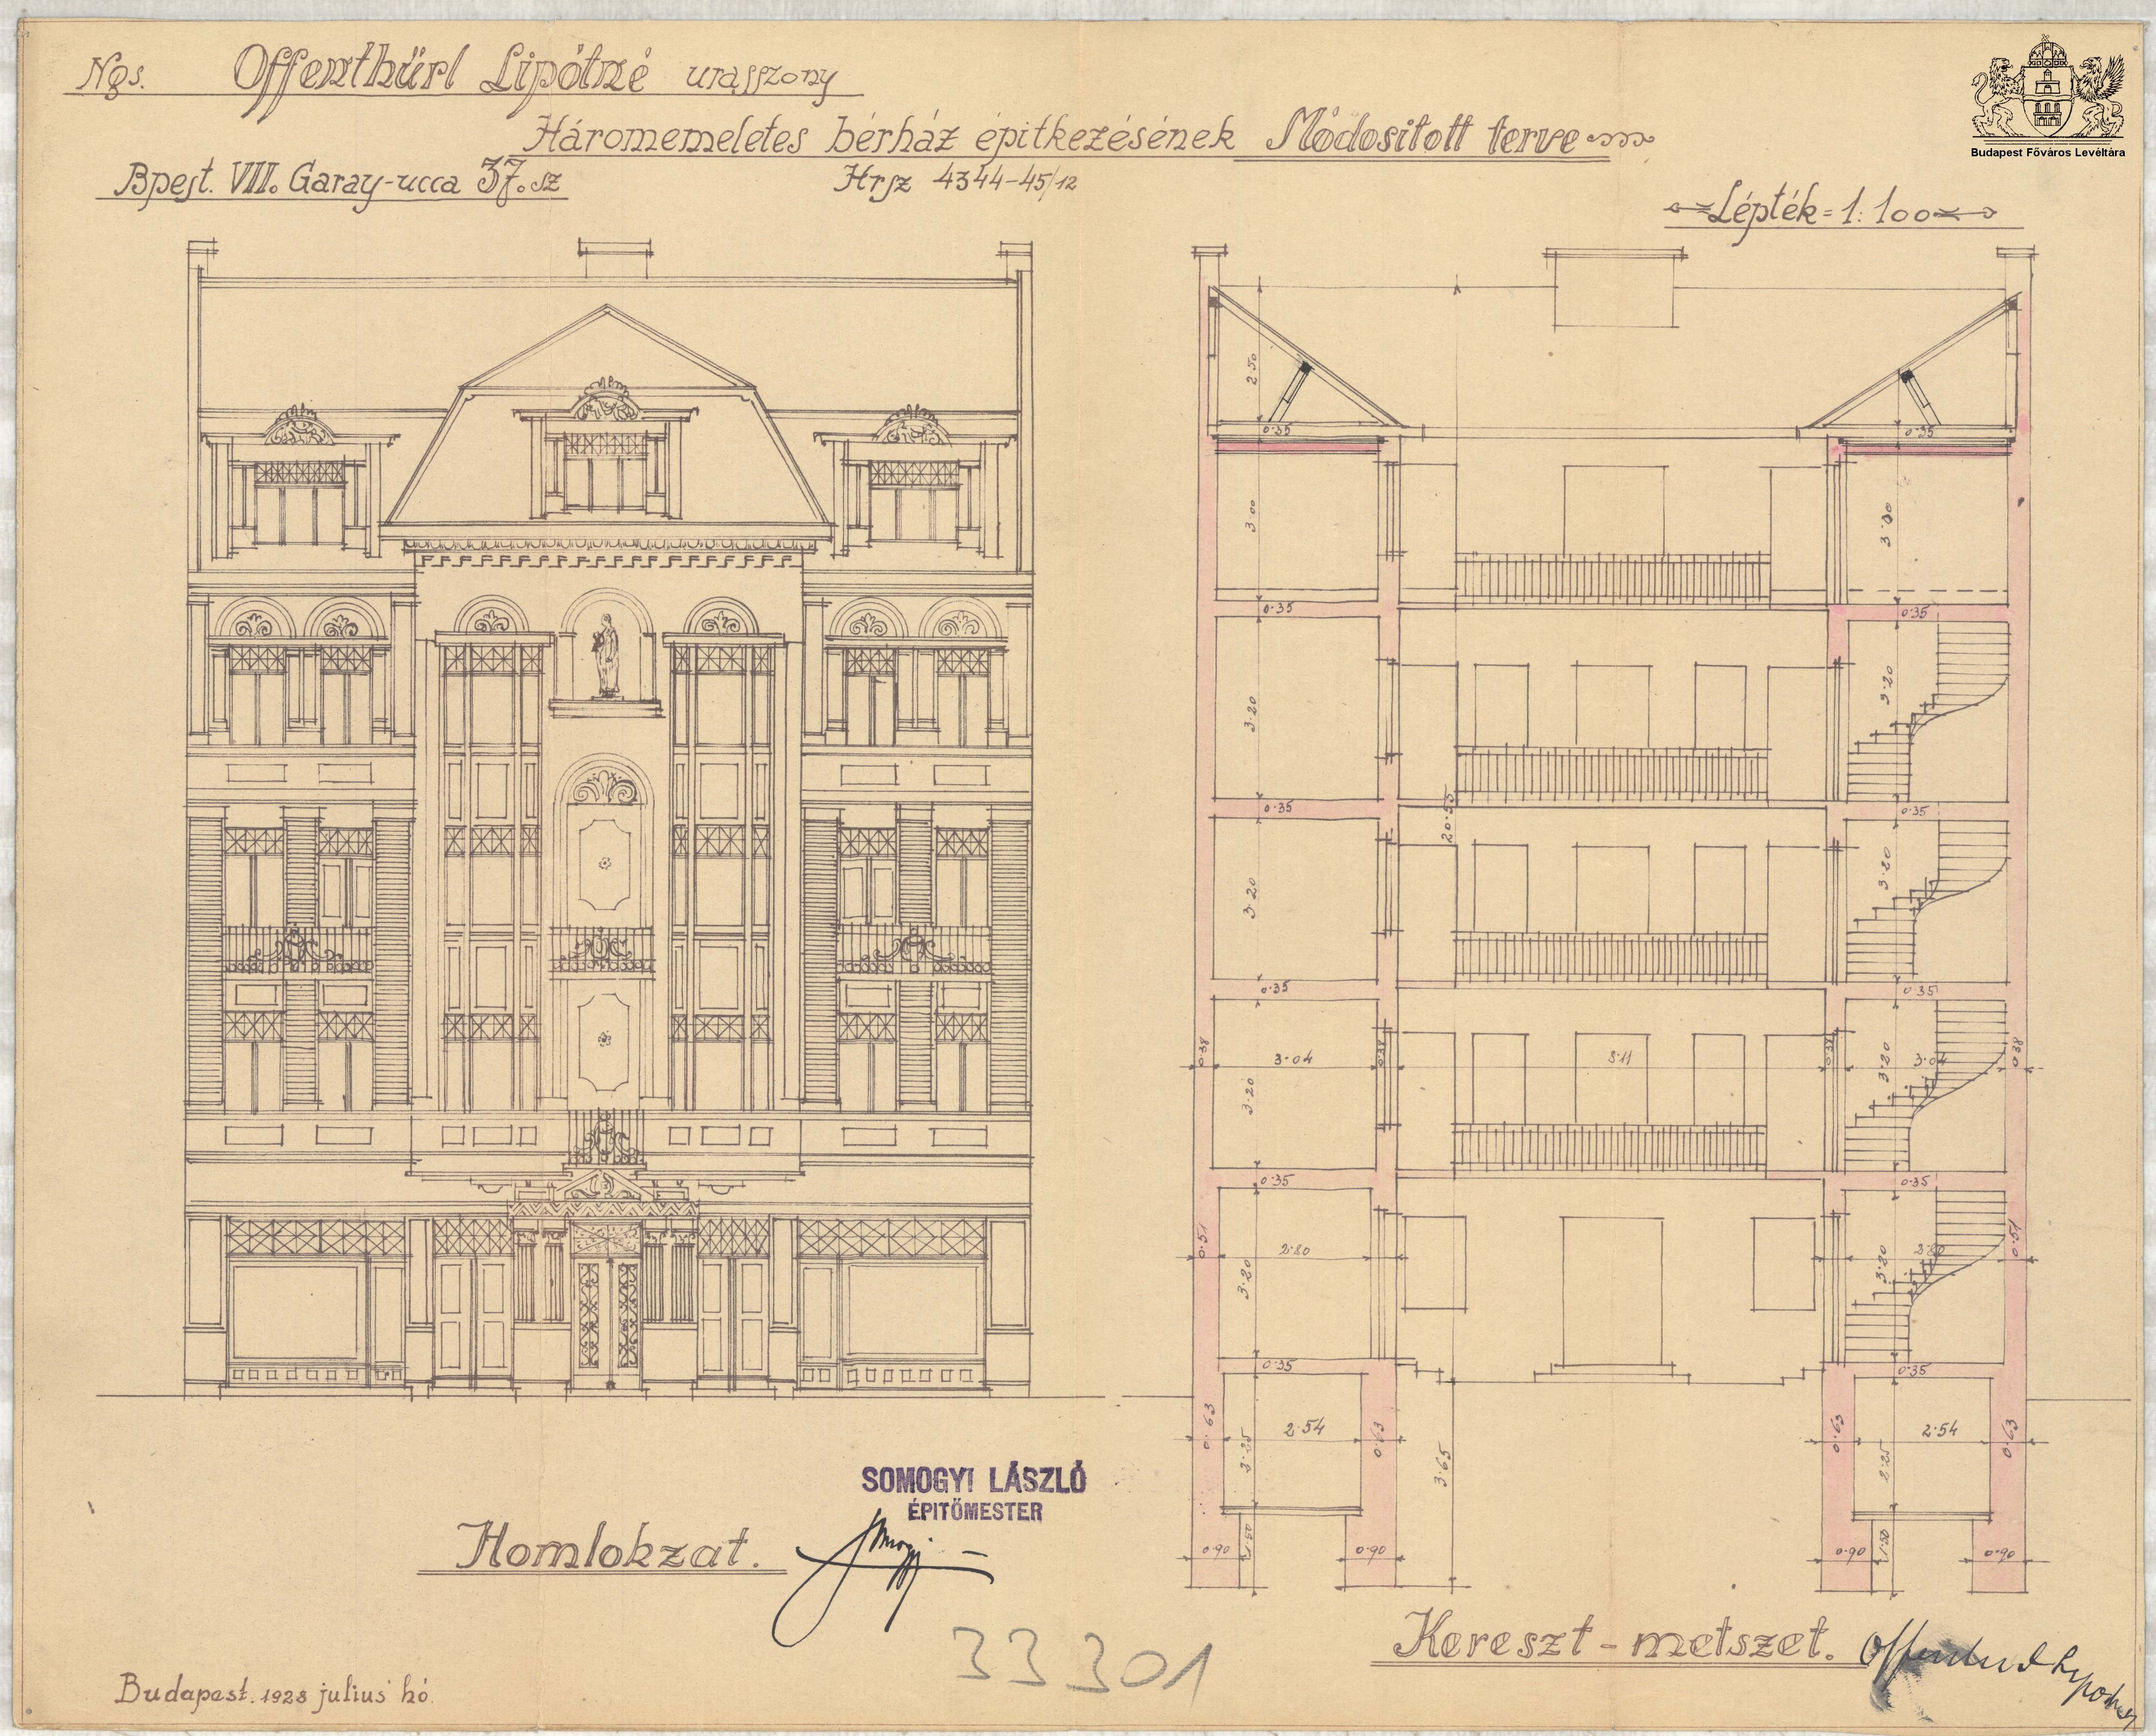 Ngs. Offenthürl Lipótné urasszony
Háromemeletes bérház épitkezésének Módositott terve
Bpest. VII. Garay-ucca 37. sz
Hrsz 4344-45/12
Lépték = 1:100
Budapest Főváros Levéltára
2·50
0·35
0·35
3·00
3·00
0·35
0·35
3·20
3·20
0·35
0·35
20·55
3·20
3·20
0·35
0·35
0·38
3·04
0·38
0·38
3·04
0·38
3·20
3·20
0·35
0·35
0·51
2·80
0·51
3·20
3·20
0·35
0·35
0·63
2·54
0·63
0·63
2·54
0·63
2·25
3·65
0·90
1·50
0·90
0·90
1·50
0·90
SOMOGYI LÁSZLÓ
ÉPITŐMESTER
Homlokzat.
Somogyi
33301
Kereszt-metszet.
Budapest. 1928 julius hó.